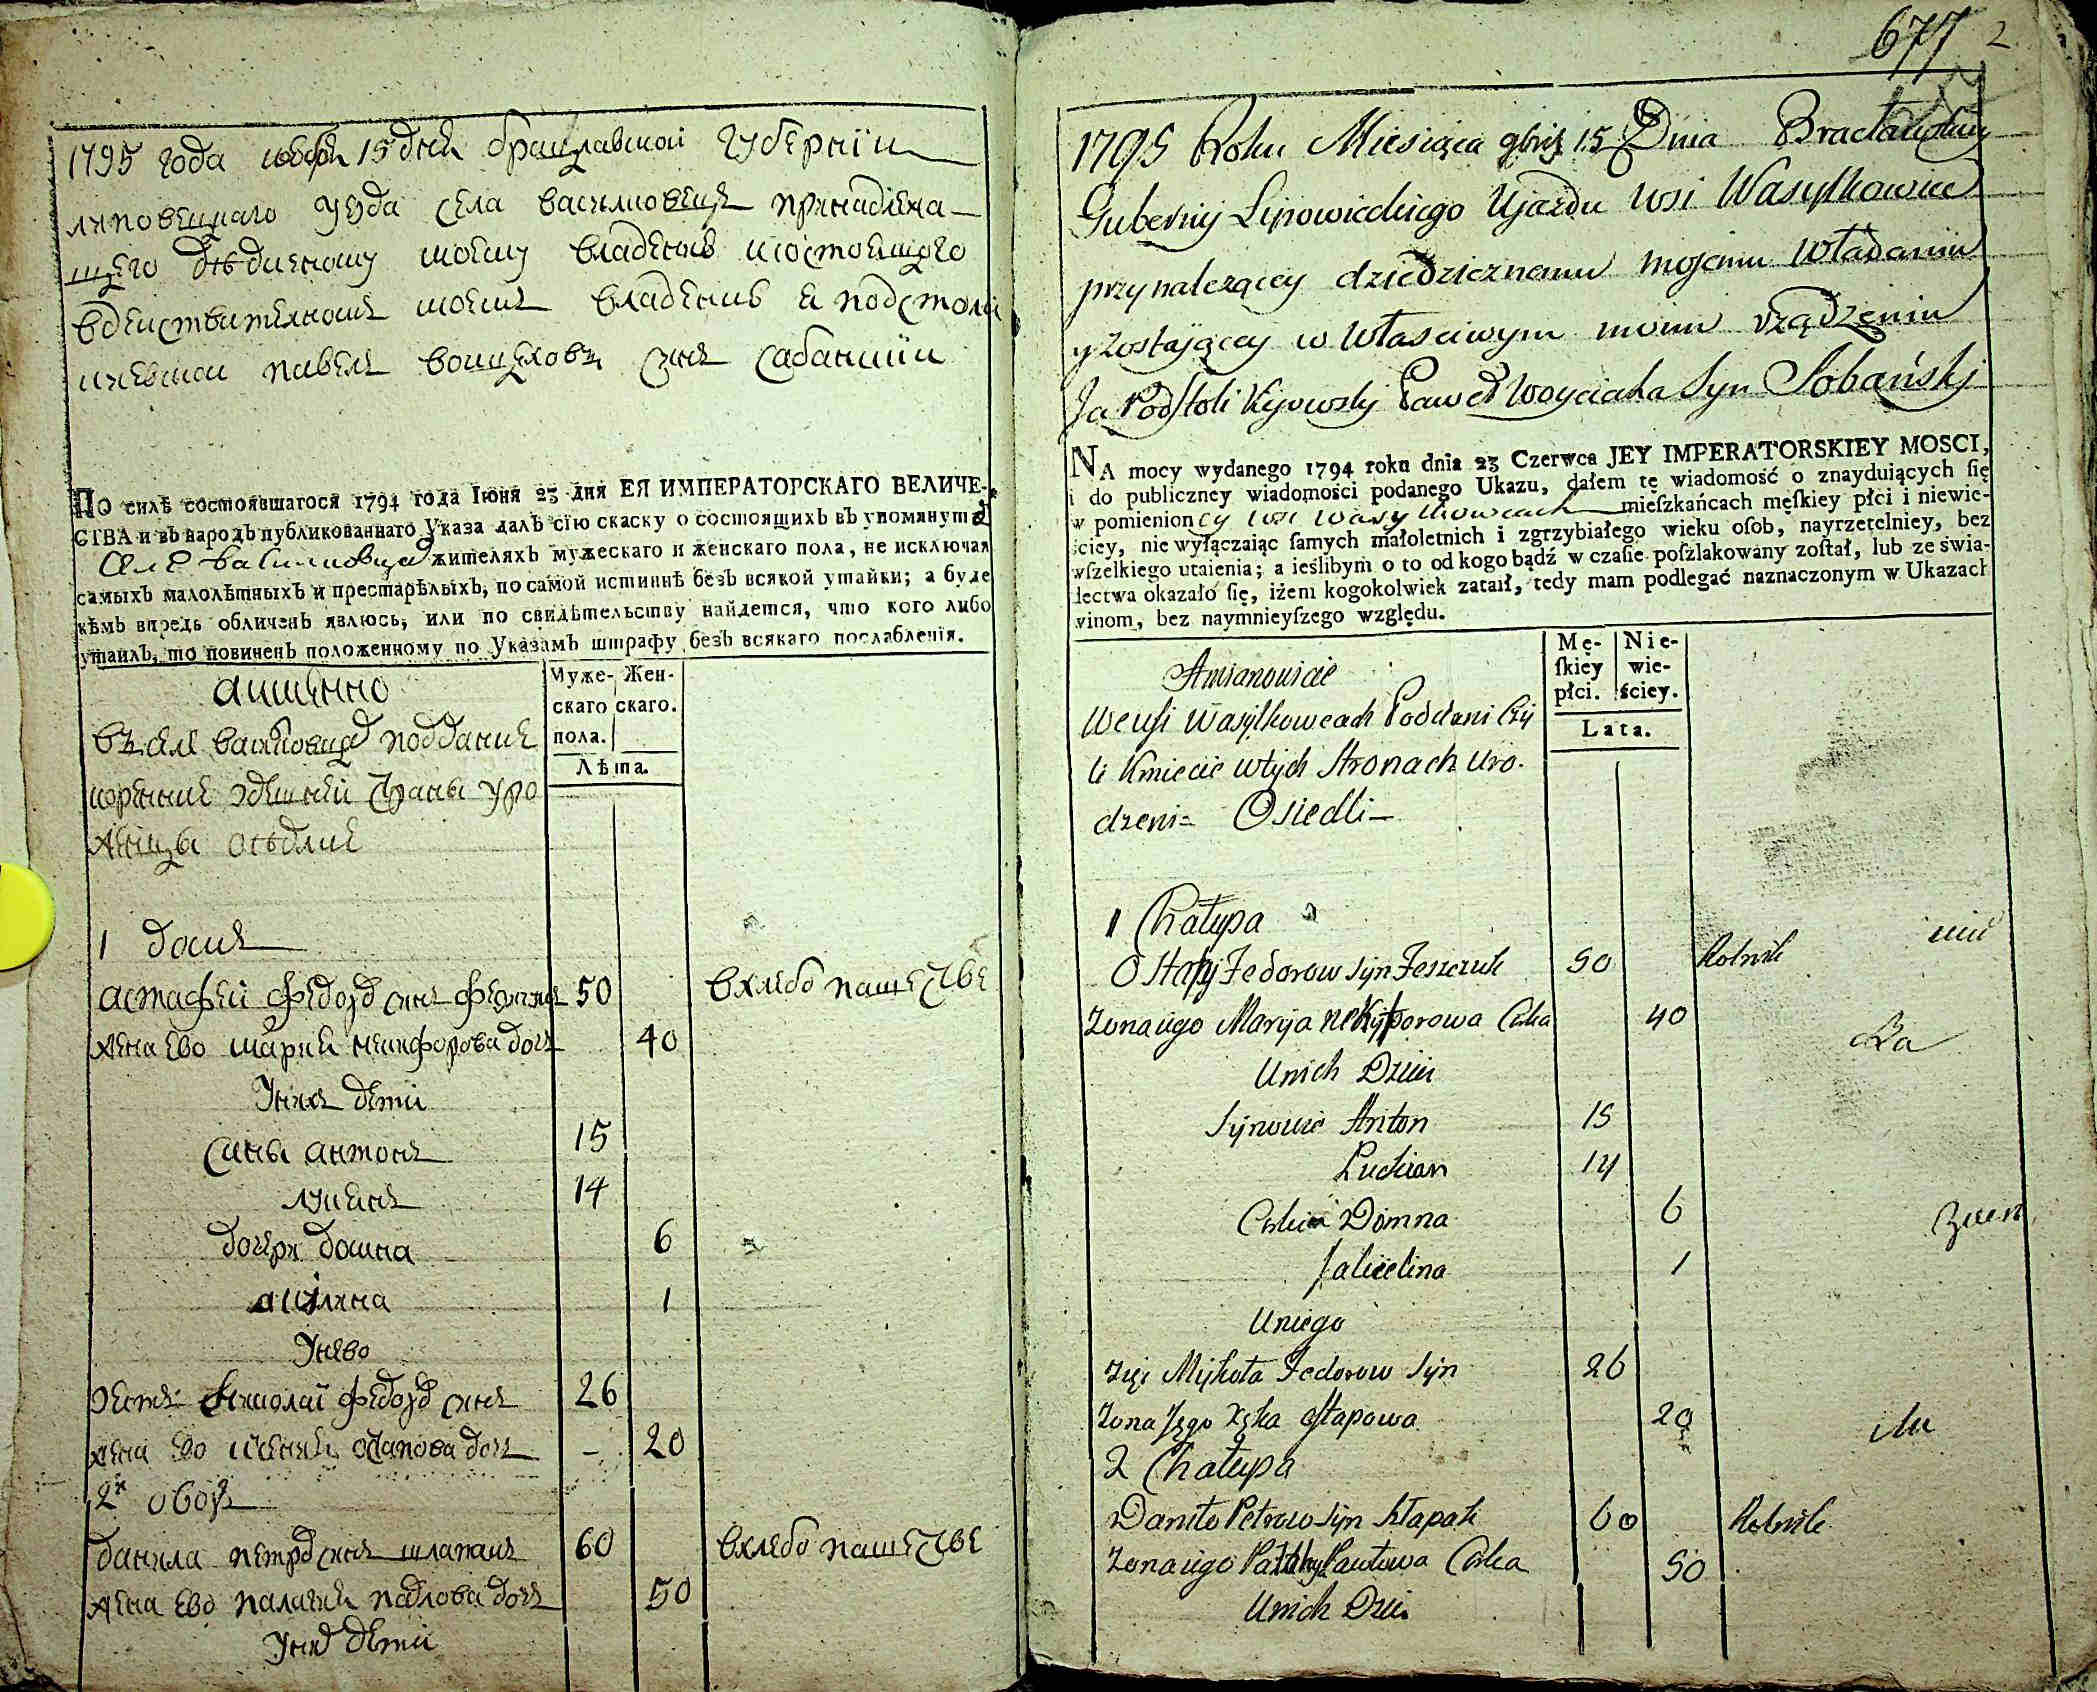 1795 года ноября 15 дня брацлавской губернїи
липовецкаго уезда села василковецъ принадлежа–
щего дѣдичному моему владению и состоящого
вдействителномъ моемъ владениѣ я подстоли
киевской павелъ войцеховъ синъ сабанский
ПО силѣ состоявшагося 1794 года Iюня 23 дня ЕЯ ИМПЕРАТОРСКАГО ВЕЛИЧЕ-
СТВА и въ народъ публикованнаго Указа далъ сїю скаску о состоящихъ въ упомянутом
селе василковцах жителяхъ мужескаго и женскаго пола, не исключая
самыхъ малолѣтныхъ и престарѣлыхъ, по самой истиннѣ безъ всякой утайки; а буде
кѣмъ впредь обличенъ явлюсь, или по свидѣтельству найдется, что кого либо
утаилъ, то повиненъ положенному по Указамъ штрафу безъ всякаго послабленїя.
Муже-скаго пола. Жен-скаго.
Лѣта.
аименно
въ селе василковцах поддание
коренние здешней страны уро
женцы осѣдлие
1 домъ
астафей федоров синъ 50 вхлебопашестве
жена ево мария никифорова дочъ 40
Унихъ дети
сины антонъ 15
лукянъ 14
дочери домна 6
акулина 1
Унево
зять николай федоров синъ 26
жена ево ксения остапова дочъ – 20
2й дворъ
данила петров синъ шлапакъ 60 вхлебопашестве
жена ево палагия павлова дочъ 50
Уних дети
677 2
1795 Roku Miesiąca 9bris 15 Dnia Bracławskiey
Gubernij Lipowieckiego Ujazdu wsi Wasylkowiec
przynalezącey dziedzicznemu mojemu władaniu
y zostaiącey w własciwym moim rządzeniu
Ja Podstoli Kijowskj Paweł Woyciecha Syn Sobański
NA mocy wydanego 1794 roku dnia 23 Czerwca JEY IMPERATORSKIEY MOSCI,
i do publiczney wiadomości podanego Ukazu, dałem tę wiadomość o znayduiących ſię
w pomienioncy wsi Wasylkowcach mieſzkańcach męſkiey płci i niewie-
ściey, nie wyłączaiąc ſamych małoletnich i zgrzybiałego wieku oſob, nayrzetelniey, bez
wſzelkiego utaienia; a ieślibym o to od kogo bądź w czaſie poſzlakowany został, lub ze świa-
dectwa okazało ſię, iżem kogokolwiek zataił, tedy mam podlegać naznaczonym w Ukazach
vinom, bez naymnieyſzego względu.
Mę-ſkiey płci. Nie-wie-ściey.
Lata.
Amianowicie
we wsi Wasylkowcach Poddani Czy
li Kmiecie w tych Stronach Uro.
dzeni= Osiedli–
1 Chałupa
Ostafij Fedorow Syn Feszczuk 50 Rolnik
Zona iego Maryja Nekyporowa Corka 40
U nich Dzieci
Synowie Anton 15
Luckian 14
Corki Domna 6
Jakielina 1
U niego
Zięć Mykoła Fedorow Syn 26
Zona Jego Ostapowa 20
2 Chałupa
Daniło Petrow Syn Szłapak 60 Rolnik
Zona iego Pawłowa Corka 50
U nich Dzie.